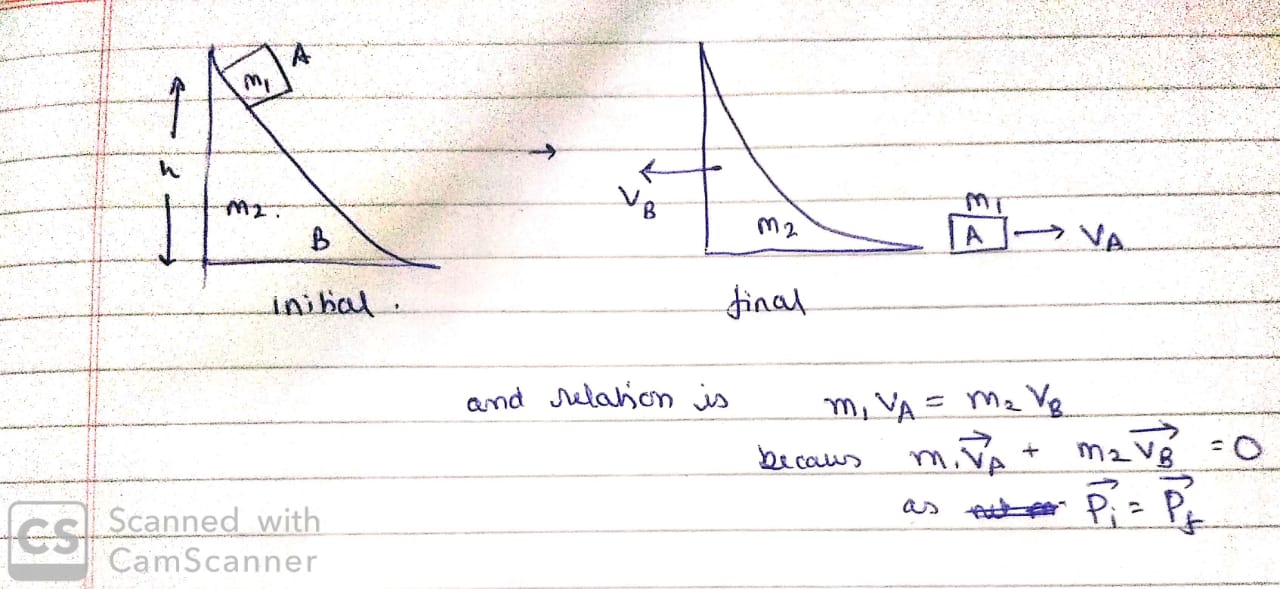 A
m1
h
m2.
B
initial.
→
VB
m2
m1
A → VA
final
and relation is m1 VA = m2 VB
becaus m1 V⃗A + m2 V⃗B = 0
as P⃗i = P⃗f
CS Scanned with
CamScanner